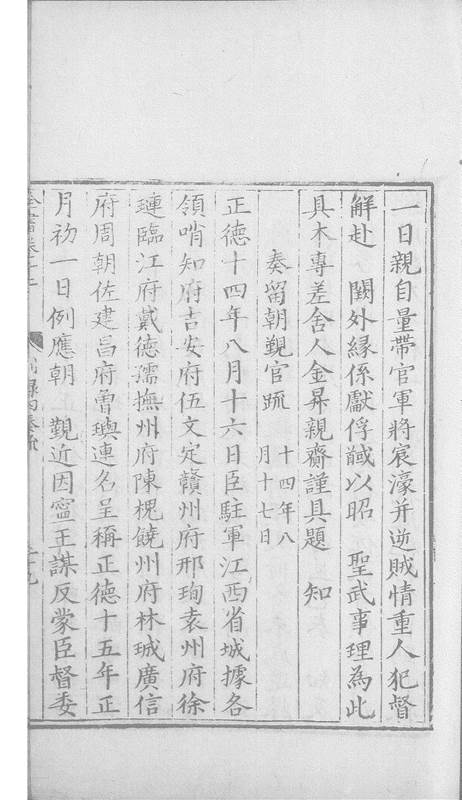 一日親自量帶官軍將宸濠并逆賊情重人犯督
解赴　闕外緣係獻俘馘以昭　聖武事理為此
具本專差舍人金昇親齎謹具題　知
奏留朝覲官疏　十四年八
月十七日
正德十四年八月十六日臣駐軍江西省城據各
領哨知府吉安府伍文定贛州府邢珣袁州府徐
璉臨江府戴德孺撫州府陳槐饒州府林珹廣信
府周朝佐建昌府曾璵連名呈稱正德十五年正
月初一日例應朝　覲近因寧王謀反蒙臣督委